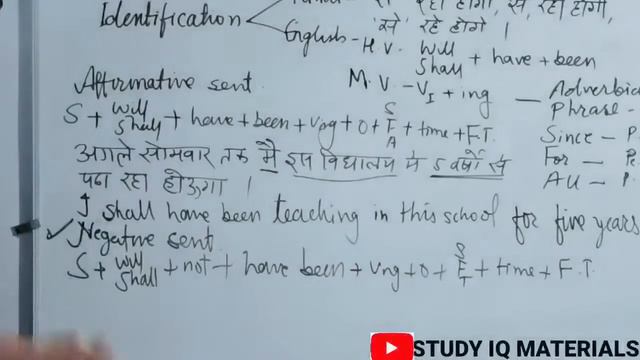 रहा होगी, से, रहा होगी,
Identification
'से' रहे होंगे ।
English - H.V. Will Shall + have + been
Affirmative sent.
M.V. - V1 + ing - Adverbial Phrase -
S + Will Shall + have + been + Ving + O + S F A + time + F.T.
Since - P
अगले सोमवार तक मैं इस विद्यालय में 5 वर्षों से
For - Pe
पढ़ा रहा होऊंगा ।
All - P.
I shall have been teaching in this school for five years
Negative sent.
S + Will Shall + not + have been + Ving + O + S F T + time + F.T.
STUDY IQ MATERIALS